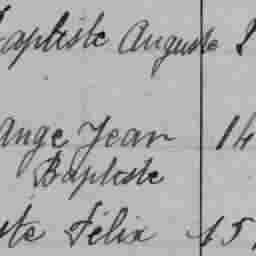 Baptiste Auguste
Ange Jean 14
Baptiste
ste Félix 15